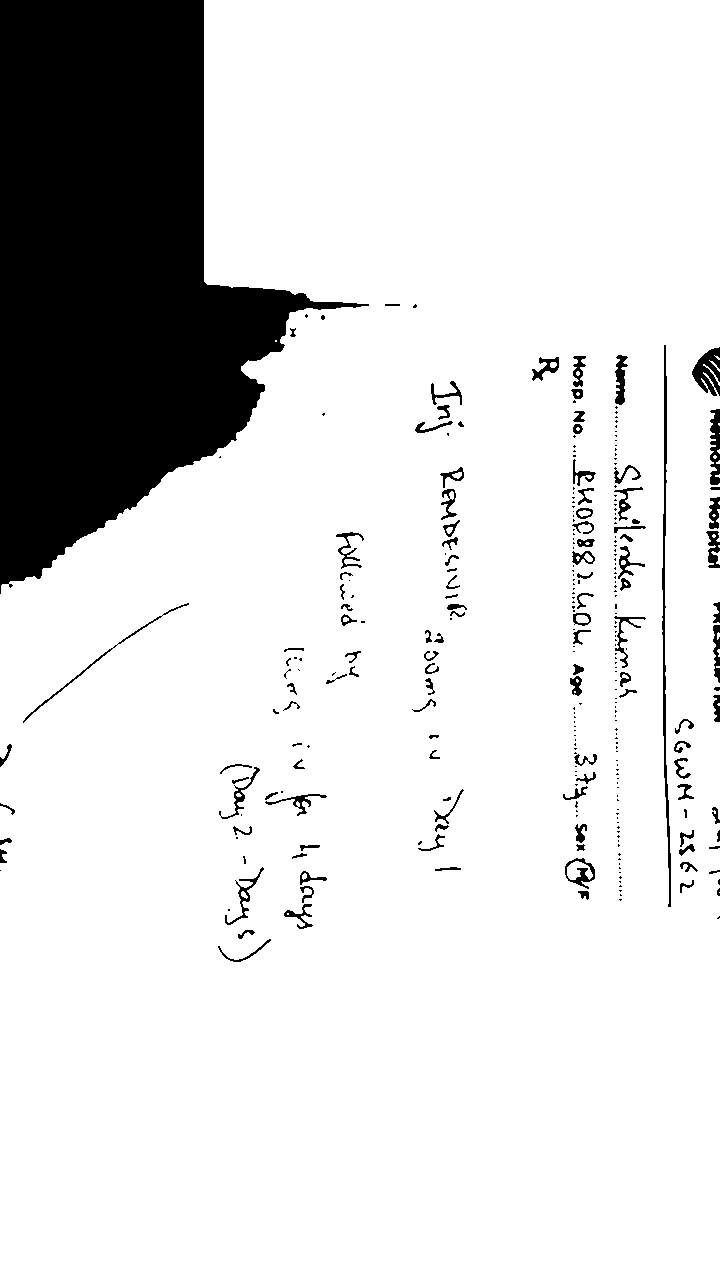 Memorial Hospital PRESCRIPTION
SGWM-2562
Name Shailendra Kumar
Hosp. No. Age 37y Sex M/F
Rx
Inj. REMDESIVIR 200mg iv Day 1
followed by
100mg iv for 4 days
(Day 2 - Day 5)